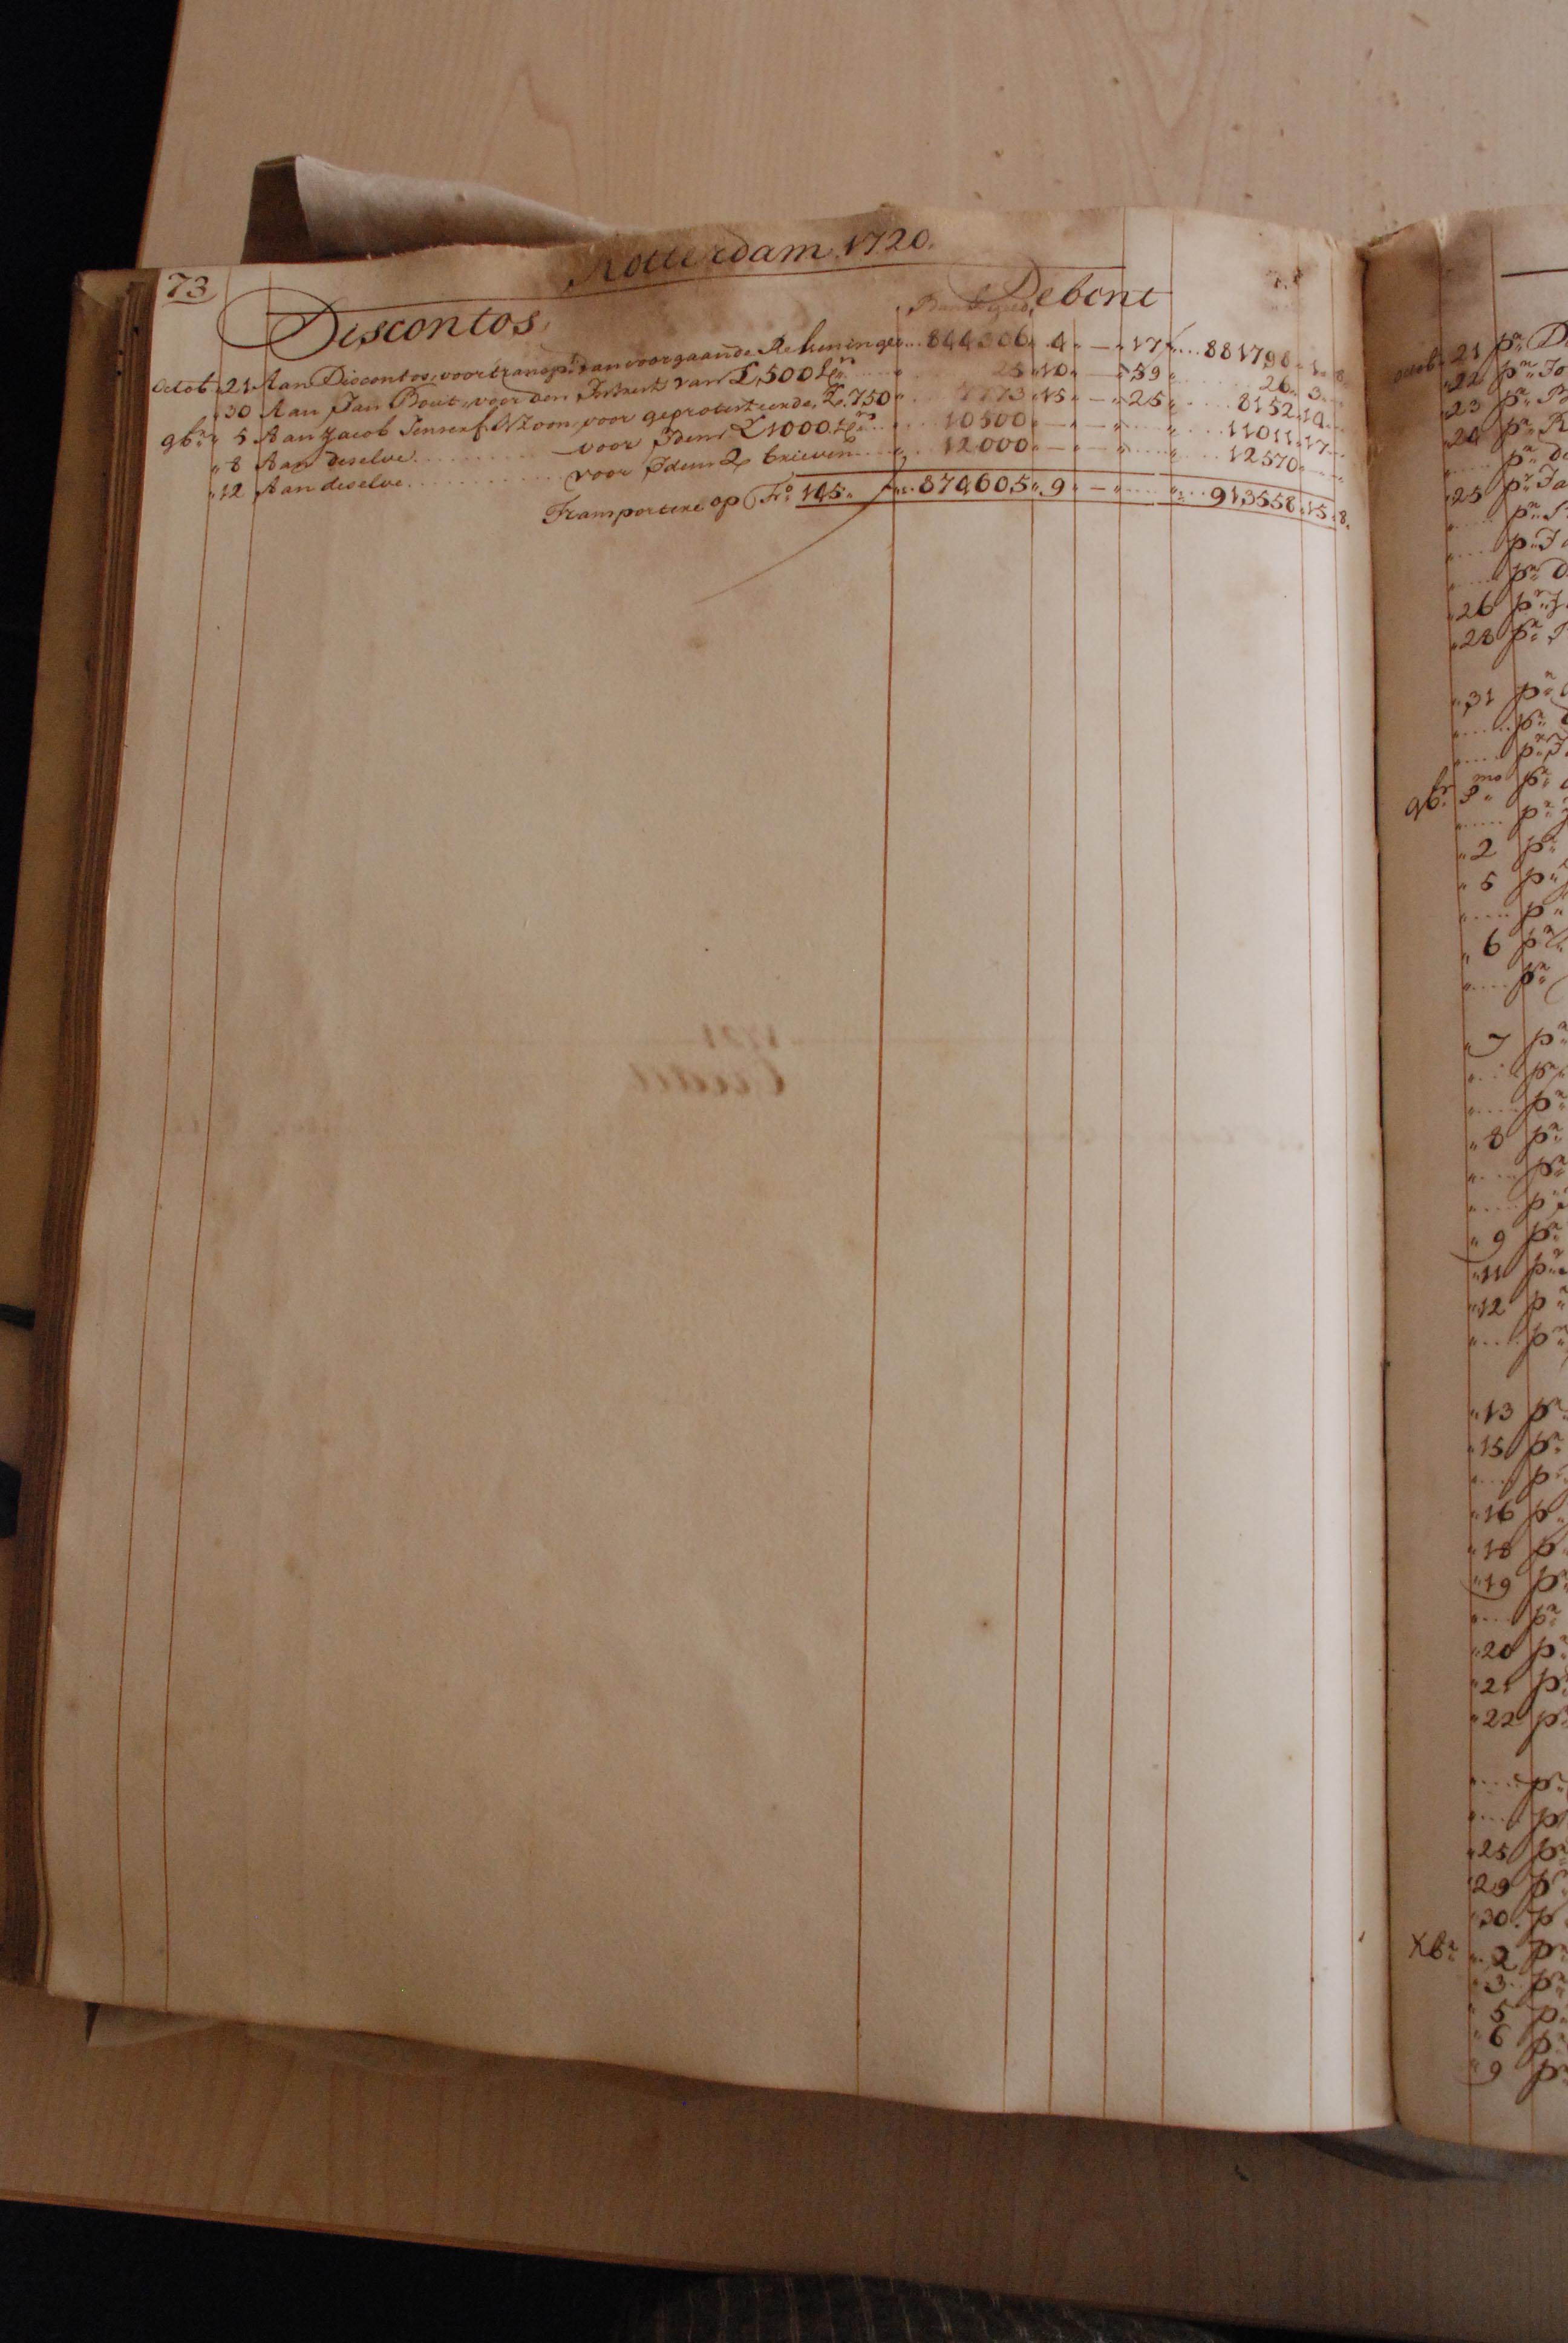 Rotterdam 1720.
73
Debent
Discontos,
Bank geld,
Octob 21 Aan Discontos, voor transp.t van voorgaande Rekeninge 844306 4 — 17 881798 1 8
30 Aan Jan Bout, voor den Intrest van £,500 25 10 — 59 26 3
9br. 5 Aan Jacob Senserf WZoon, voor geprotesteerde, £.750 7773 15 — 25 8152 10
8 Aan deselve voor Idem £1000 10500 — — 11011 17
12 Aan deselve voor Idem 2 brieven 12000 — — 12570 —
Transportere op Fo. 145. f 874605 9 — 913558 15 8.
octob 21 pr. D
22 pr. Jo
23 pr.
24 pr. R
pr. de
25 pr. Ja
pr. S
pr. Ja
pr. d
26 pr.
28 pr.
31 pr.
pr.
pr.
9br. pmo pr.
pr.
2 pr.
5 pr.
pr.
6 pr.
pr.
7 pr.
pr.
pr.
8 pr.
pr.
pr.
9 pr.
11 pr.
12 pr.
pr.
13 pr.
15 pr.
pr.
16 pr.
18 pr.
19 pr.
pr.
20 pr.
21 pr.
22 pr.
pr.
pr.
25 pr.
29 pr.
30 pr.
Xbr. 2 pr.
3 pr.
5 pr.
6 pr.
9 pr.